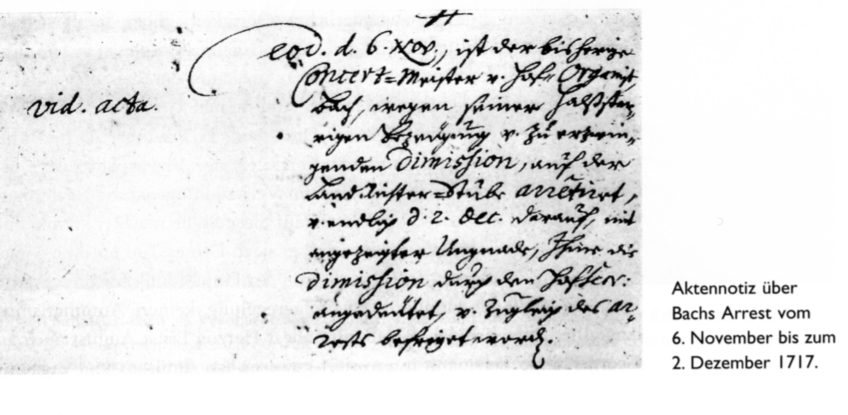 eod. d. 6. Nov., ist der bisherige
Concert=Meister v. Hof=Organist,
vid. acta.
Bach, wegen seiner Halßstar,
rigen Bezeügung v. zu erzwin,
genden dimission, auf der
LandRichter=Stube arretiret,
v. endlich d. 2. Dec. darauf, mit
angezeigter Ungnade, Ihme die
dimission durch den HofSecr:
angedeütet, v. zugleich des ar,
rests befreyet word.
Aktennotiz über
Bachs Arrest vom
6. November bis zum
2. Dezember 1717.